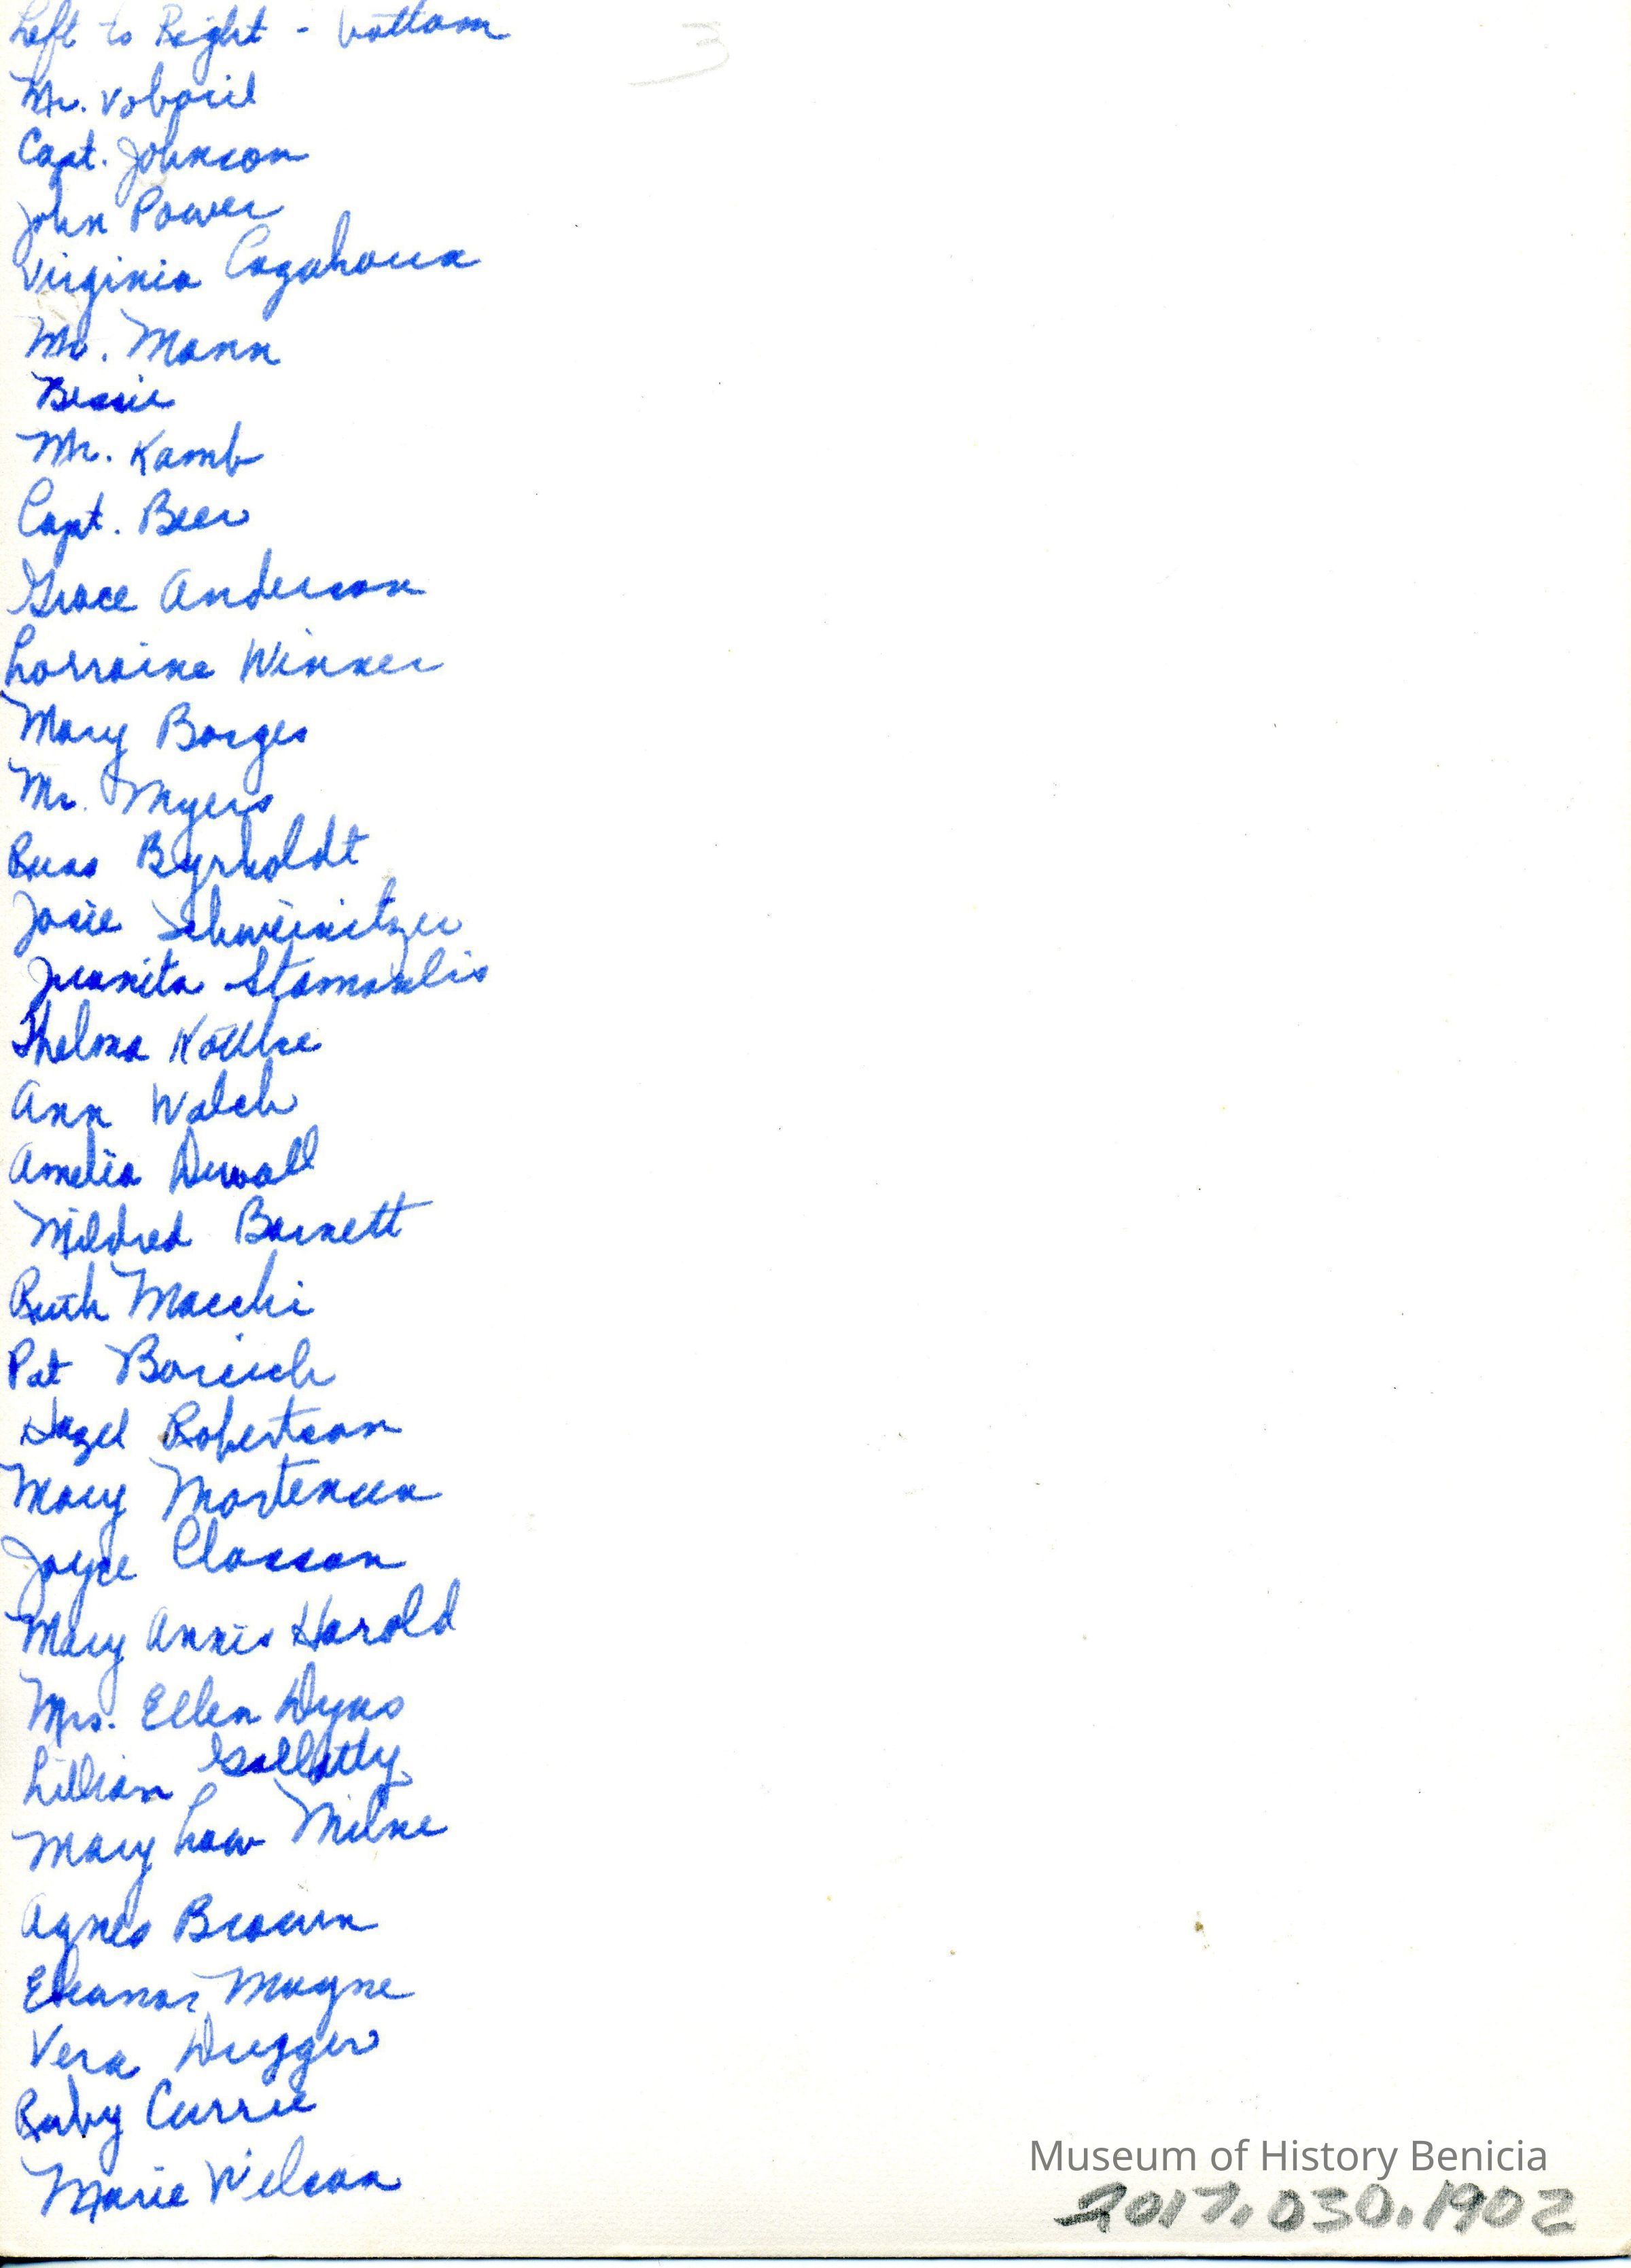 Left to Right - bottom
3
Mr. Voboril
Capt. Johnson
John Power
Virginia
Mr. Mann
Bessie
Mr. Kamb
Capt. Beer
Grace Anderson
Lorraine Winner
Mary Borges
Mr. Myers
Russ Byrholdt
Josie Schweinitzer
Juanita Stamoulis
Thelma
Ann Walch
Amelia Duvall
Mildred Barnett
Ruth Macchi
Pat
Hazel Robertson
Mary Mortensen
Joyce Classon
Mary Annis Harold
Mrs. Ellen Dyas
Lillian Gallatly
Mary Low Milne
Agnes Brown
Eleanor Mayne
Vera Dugger
Ruby Currie
Marie Wilson
Museum of History Benicia
2017.030.1902